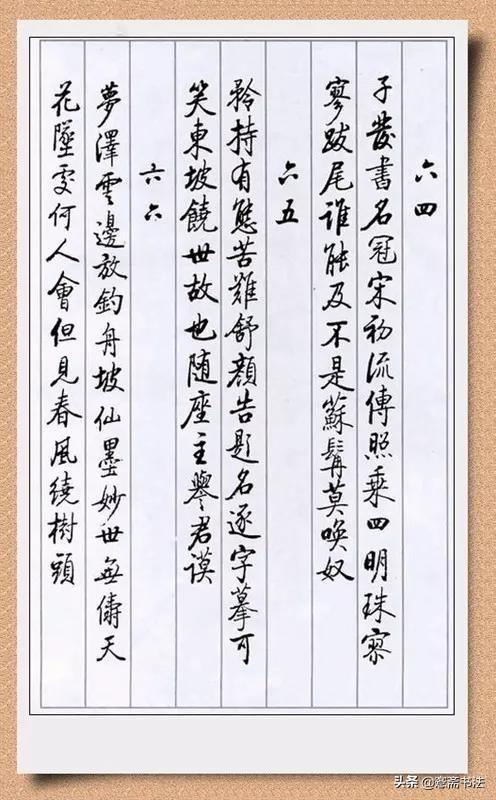 六四
子發書名冠宋初流傳照乘四明珠寥
寥跋尾誰能及不是蘇髯莫喚奴
六五
矜持有態苦難舒顏告題名逐字摹可
笑東坡饒世故也随座主譽君謨
六六
夢澤雲邊放釣舟坡仙墨妙世無儔天
花墜處何人會但見春風繞樹頭
头条 @斋书法